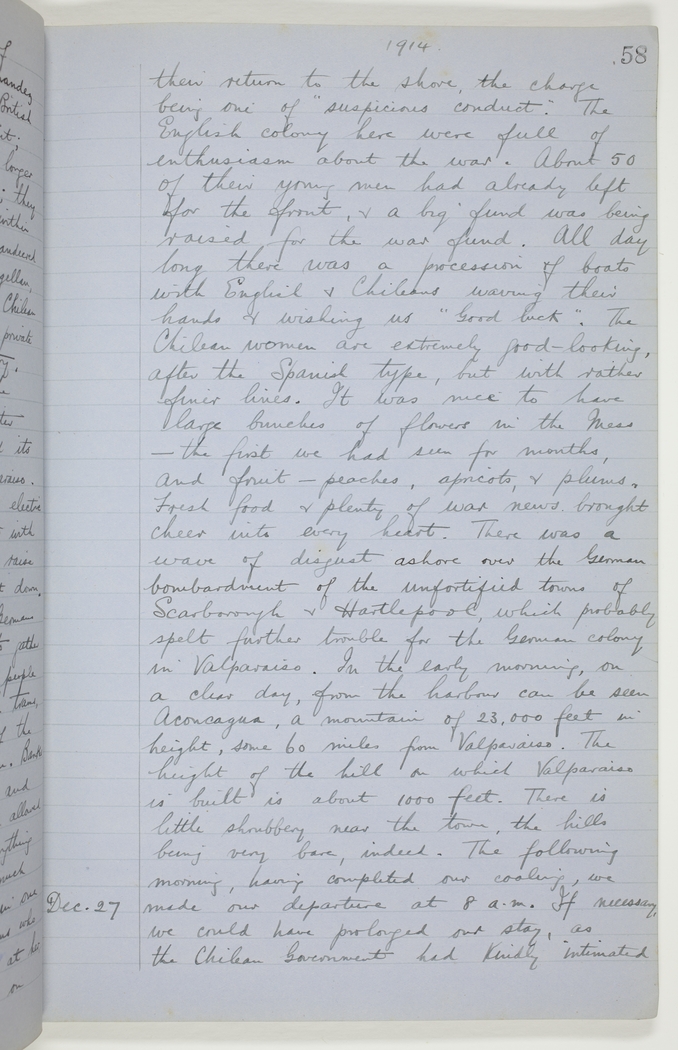 1914.
58
their return to the shore, the charge
being one of "suspicious conduct". The
English colony here were full of
enthusiasm about the war. About 50
of their young men had already left
for the front, & a big fund was being
raised for the war fund. All day
long there was a procession of boats
with English & Chileans waving their
hands & wishing us "Good luck". The
Chilean women are extremely good-looking,
after the Spanish type, but with rather
finer lines. It was nice to have
large bunches of flowers in the Mess
— the first we had seen for months,
and fruit — peaches, apricots, & plums.
Fresh food & plenty of war news brought
cheer into every heart. There was a
wave of disgust ashore over the German
bombardment of the unfortified towns of
Scarborough & Hartlepool, which probably
spelt further trouble for the German colony
in Valparaiso. In the early morning, on
a clear day, from the harbour can be seen
Aconcagua, a mountain of 23,000 feet in
height, some 60 miles from Valparaiso. The
height of the hill on which Valparaiso
is built is about 1000 feet. There is
little shrubbery near the town, the hills
being very bare, indeed. The following
morning, having completed our coaling, we
Dec. 27 made our departure at 8 a.m. If necessary,
we could have prolonged our stay, as
the Chilean Government had kindly intimated